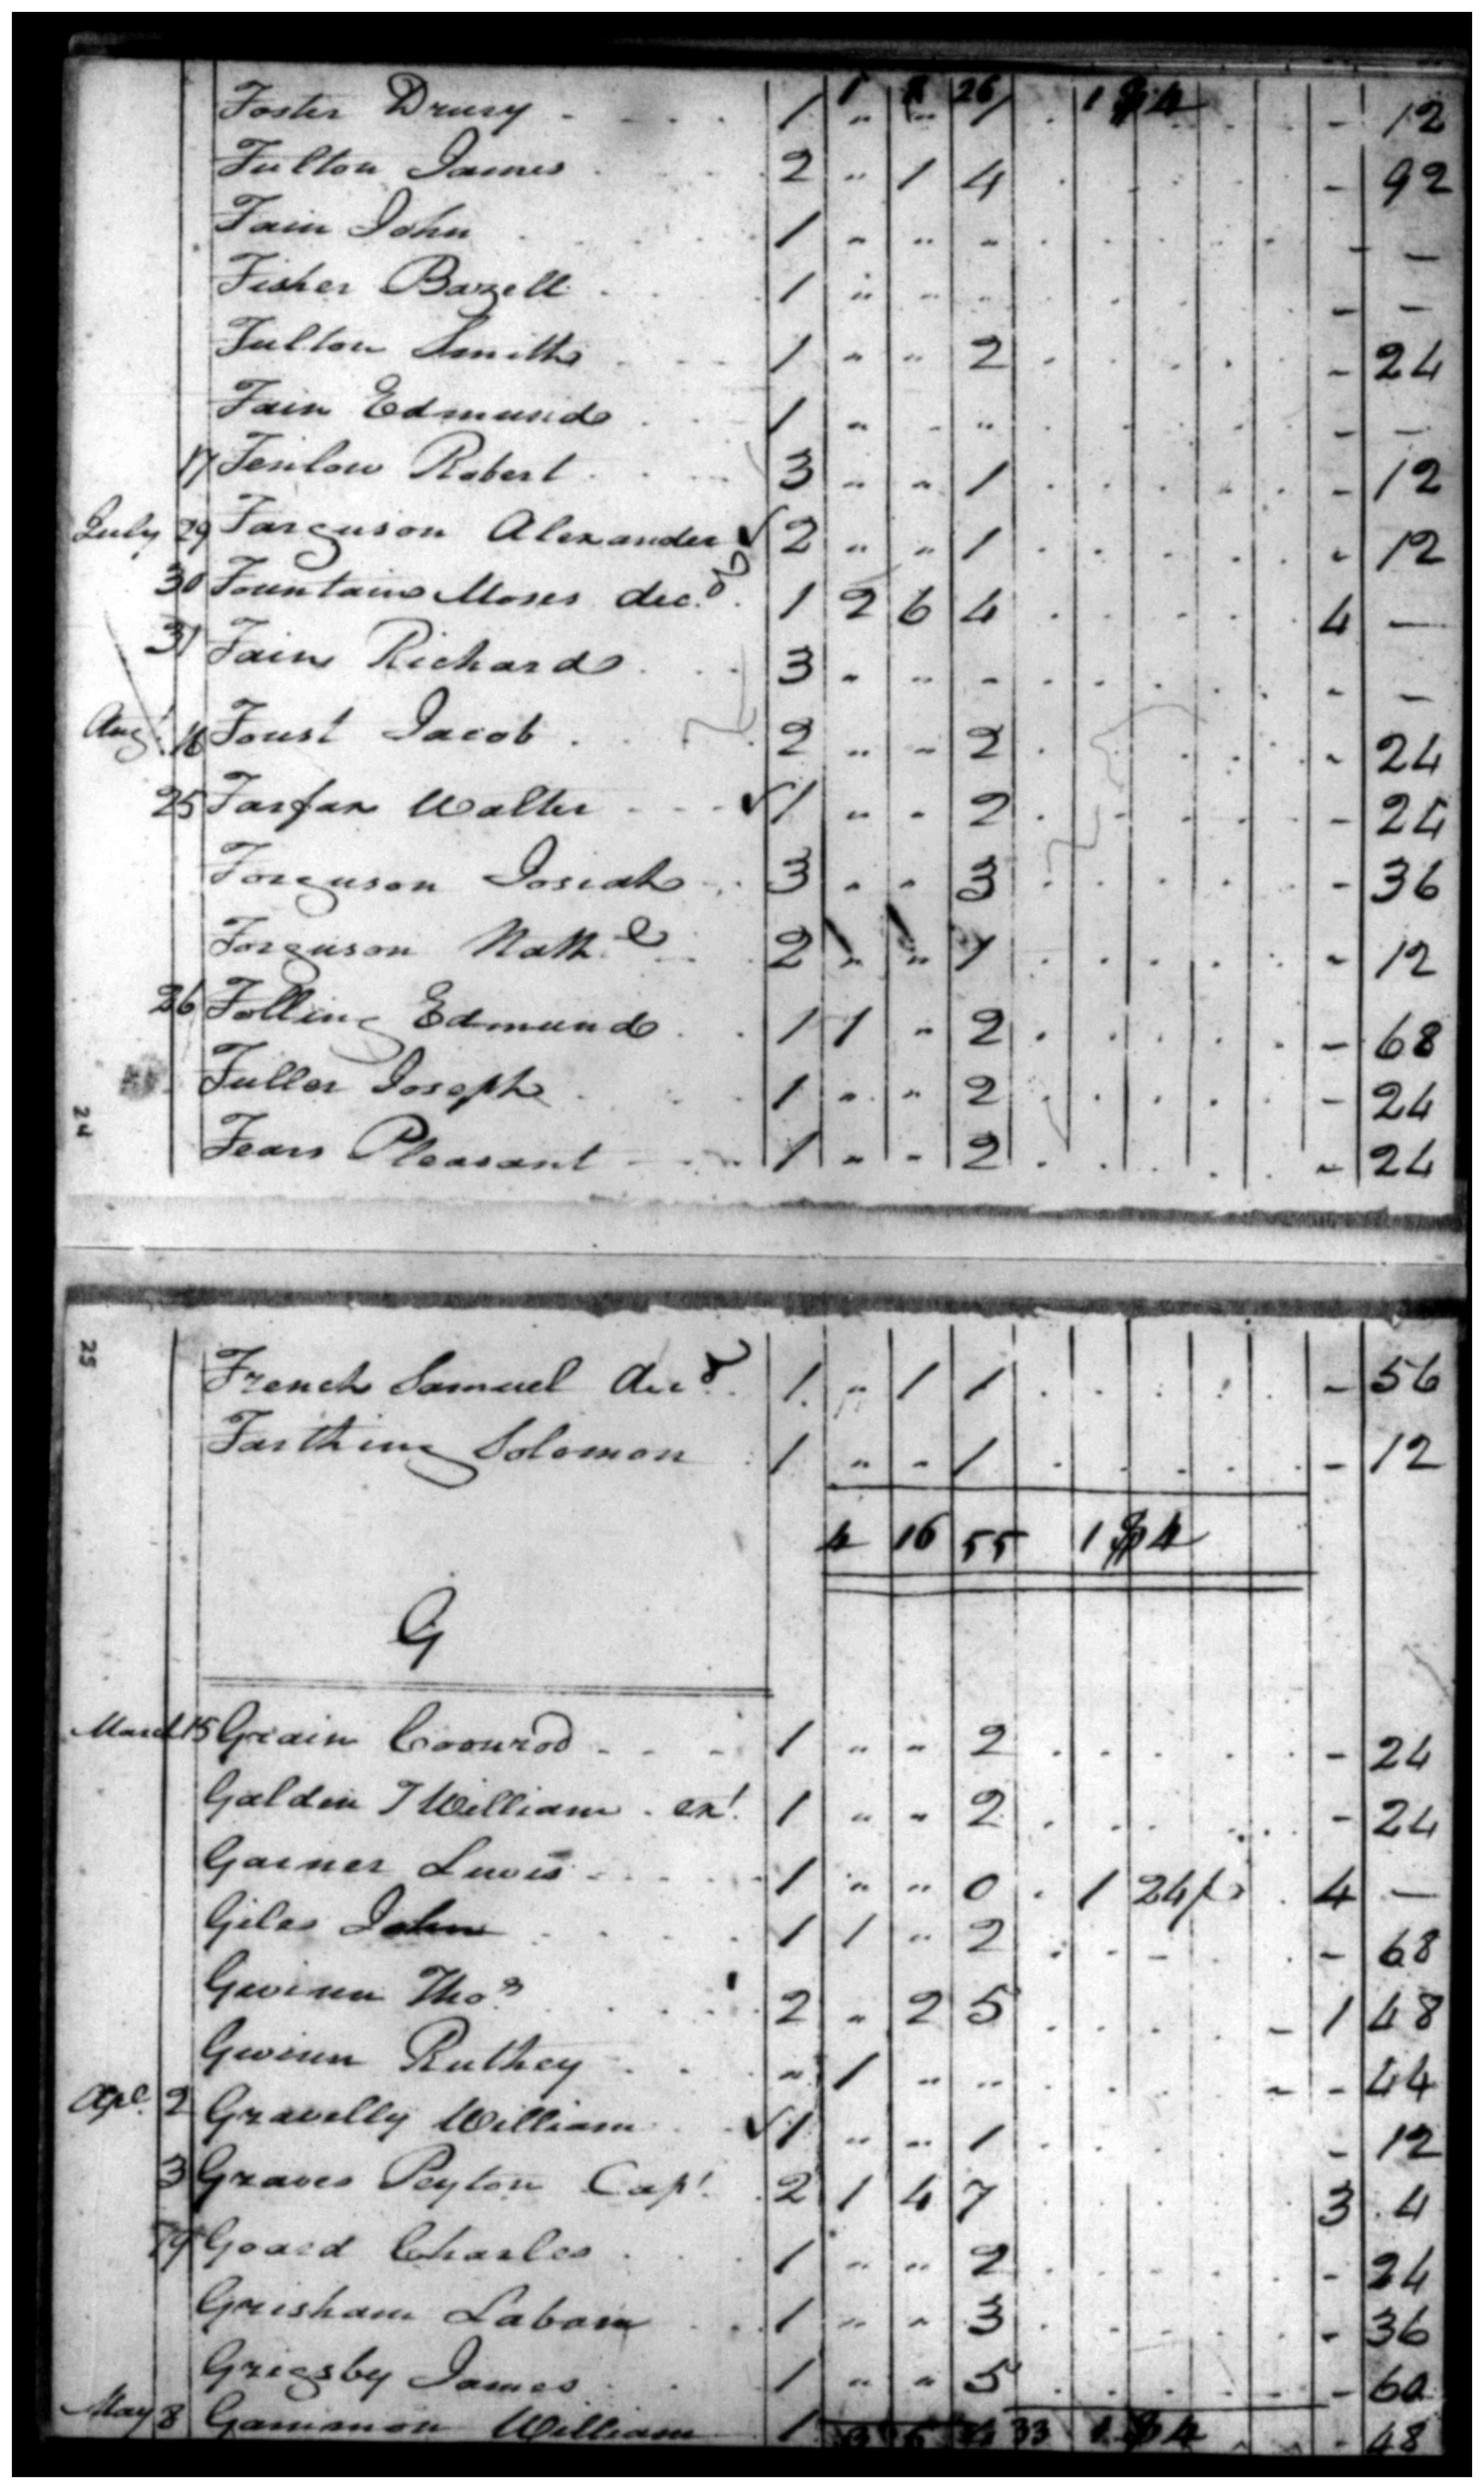 1 26 1 $4
Foster Drury 1 " " 1 - 12
Fulton James 2 " 1 4 - 92
Fain John 1 " " " - —
Fisher Bazell 1 " " " - —
Fulton Smith 1 " " 2 - 24
Fain Edmund 1 " " " - —
17 Fenlow Robert 3 " " 1 - 12
July 29 Farguson Alexander ✓ 2 " " 1 - 12
30 Fountain Moses decd. 1 2 6 4 4 —
31 Fain Richard 3 " " " - —
Augt. 16 Foust Jacob 2 " " 2 - 24
25 Farfax Walter ✓ 1 " " 2 - 24
Forguson Josiah 3 " " 3 - 36
Forguson Nathl. 2 " " 1 - 12
26 Folling Edmund 1 1 " 2 - 68
Fuller Joseph 1 " " 2 - 24
24
Fears Pleasant 1 " " 2 - 24
25
French Samuel decd. 1 " 1 1 - 56
Farthing Solomon 1 " " 1 - 12
4 16 55 1 $4
G
March 15 Grain Coonrod 1 " " 2 - 24
Galden T William . ext. 1 " " 2 - 24
Garner Lewis 1 " " 0 1 24 4 —
Giles John 1 1 " 2 - 68
Gwinn Thos. 2 " 2 5 - 1 48
Gwinn Ruthey " 1 " " - - 44
Apl. 2 Gravelly William ✓ 1 " " 1 - 12
3 Graves Peyton Capt. 2 1 4 7 3 . 4
19 Goard Charles 1 " " 2 - 24
Grisham Laban 1 " " 3 - 36
Grigsby James 1 " " 5 - 60
May 8 Gammon William 1 33 1 $4 - 48